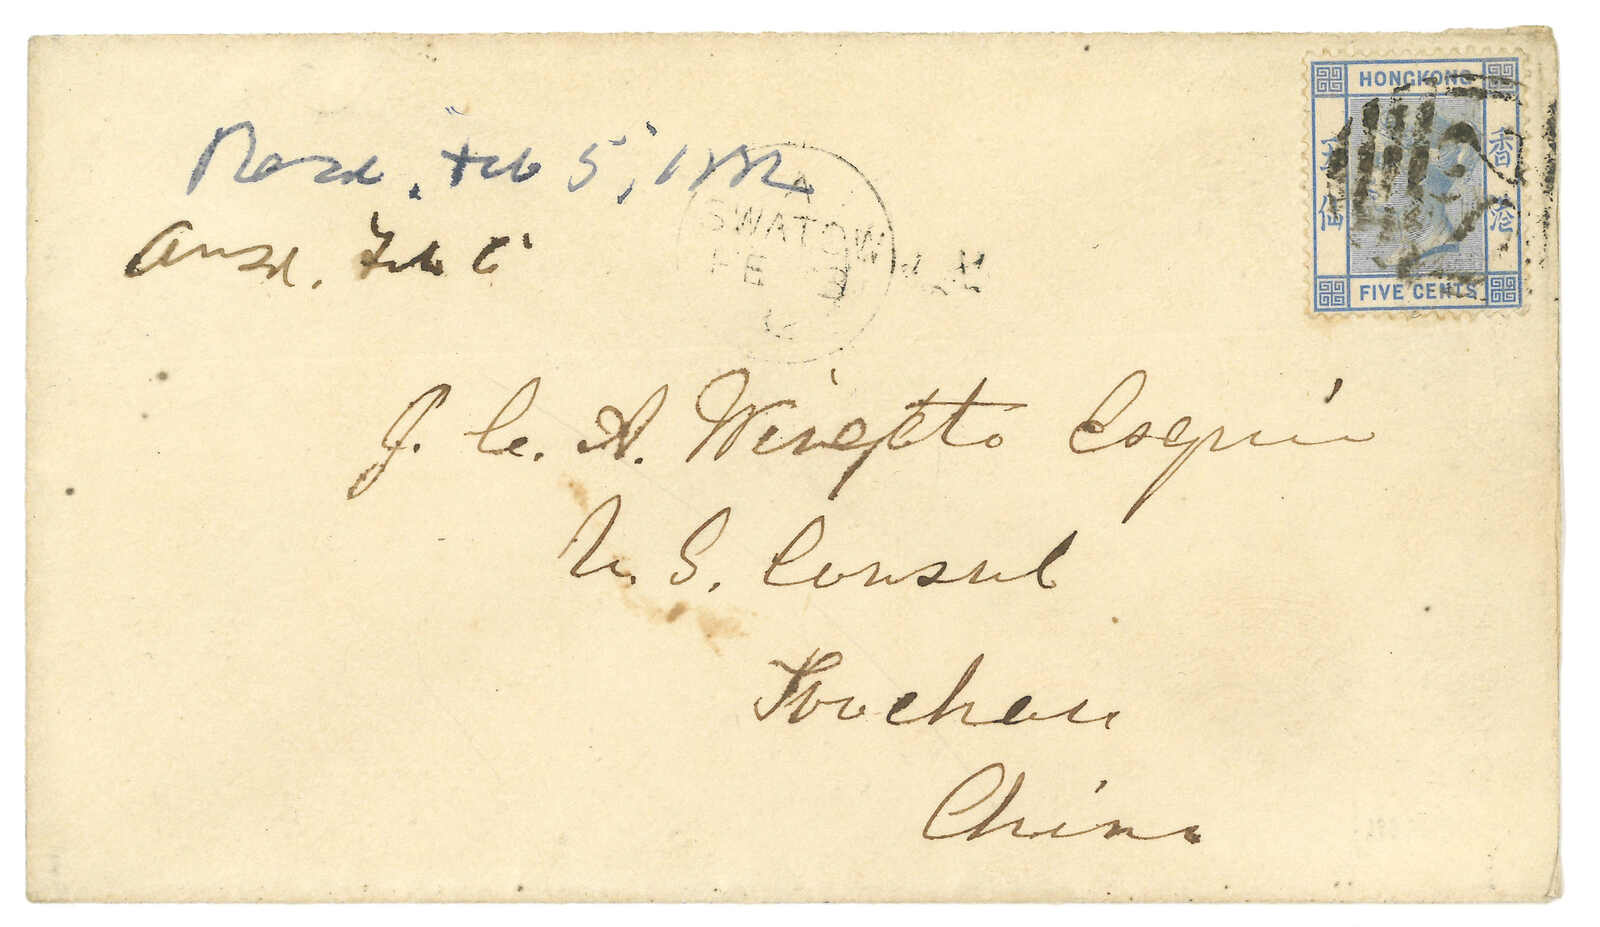 Recd. Feb 5, 1882
Ansd. Feb 6
A
SWATOW
FE 3
82
HONGKONG
香港
五仙
FIVE CENTS
J. C. A. Wingate Esquire
U. S. Consul
Foochow
China